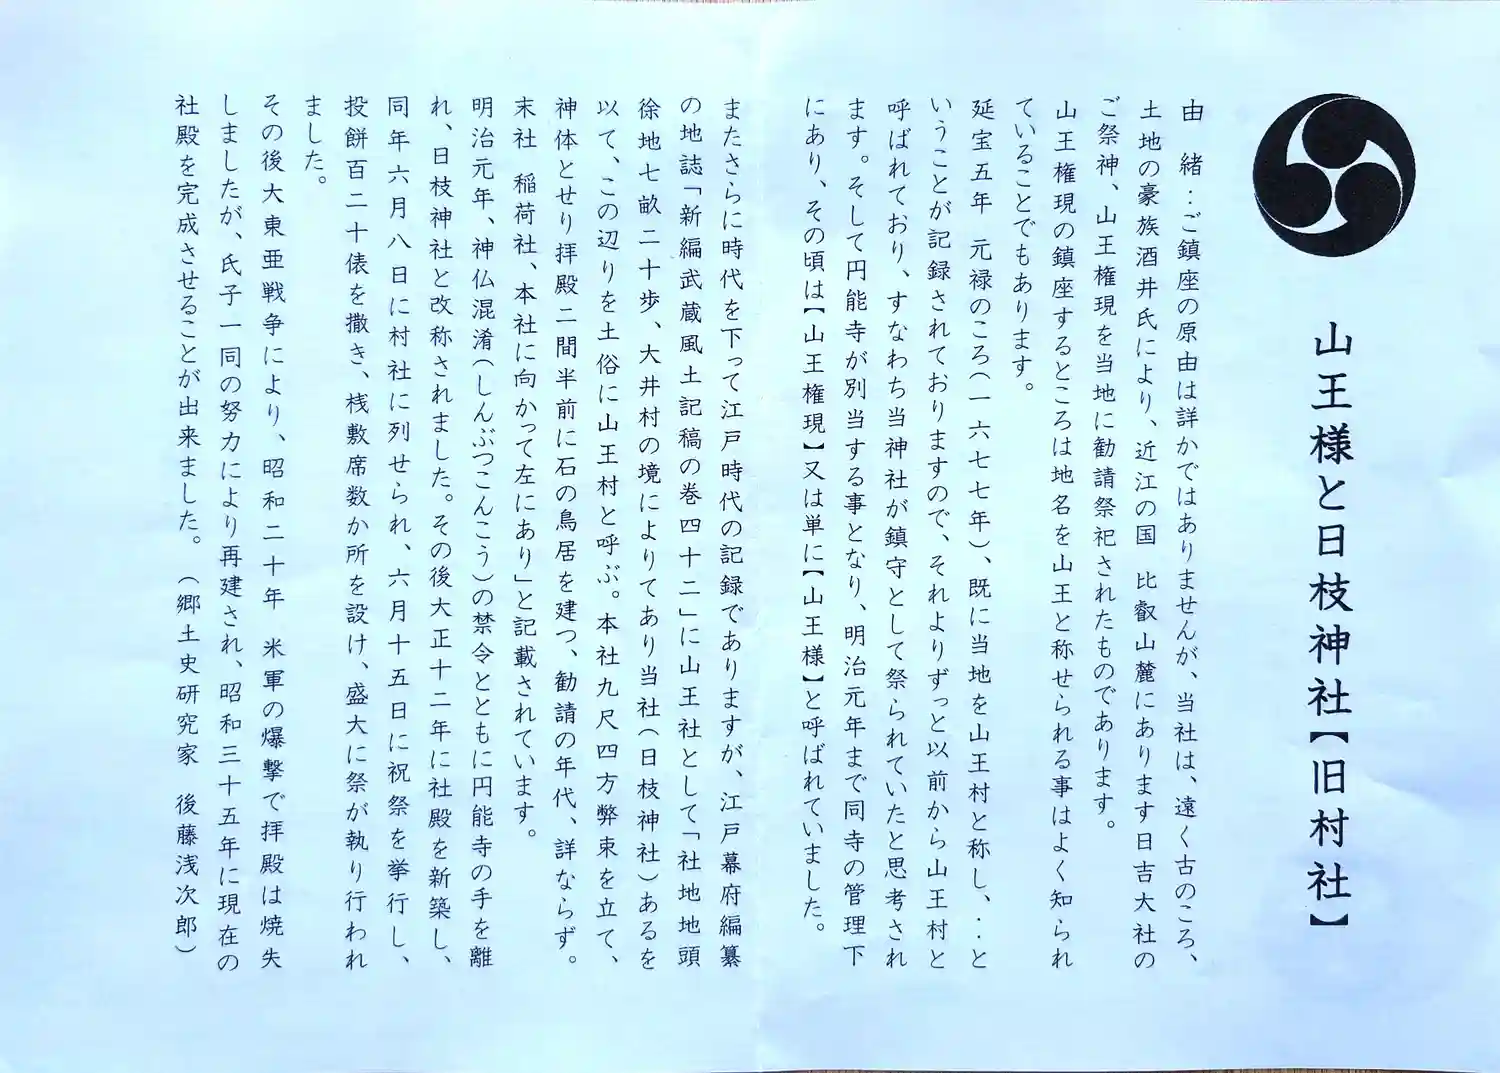 山王様と日枝神社【旧村社】
由　緒‥ご鎮座の原由は詳かではありませんが、当社は、遠く古のころ、
土地の豪族酒井氏により、近江の国　比叡山麓にあります日吉大社の
ご祭神、山王権現を当地に勧請祭祀されたものであります。
山王権現の鎮座するところは地名を山王と称せられる事はよく知られ
ていることでもあります。
延宝五年　元禄のころ（一六七七年）、既に当地を山王村と称し、‥と
いうことが記録されておりますので、それよりずっと以前から山王村と
呼ばれており、すなわち当神社が鎮守として祭られていたと思考され
ます。そして円能寺が別当する事となり、明治元年まで同寺の管理下
にあり、その頃は【山王権現】又は単に【山王様】と呼ばれていました。
またさらに時代を下って江戸時代の記録でありますが、江戸幕府編纂
の地誌「新編武蔵風土記稿の巻四十二」に山王社として「社地地頭
徐地七畝二十歩、大井村の境によりてあり当社（日枝神社）あるを
以て、この辺りを土俗に山王村と呼ぶ。本社九尺四方弊束を立て、
神体とせり拝殿二間半前に石の鳥居を建つ、勧請の年代、詳ならず。
末社　稲荷社、本社に向かって左にあり」と記載されています。
明治元年、神仏混淆（しんぶつこんこう）の禁令とともに円能寺の手を離
れ、日枝神社と改称されました。その後大正十二年に社殿を新築し、
同年六月八日に村社に列せられ、六月十五日に祝祭を挙行し、
投餅百二十俵を撒き、桟敷席数か所を設け、盛大に祭が執り行われ
ました。
その後大東亜戦争により、昭和二十年　米軍の爆撃で拝殿は焼失
しましたが、氏子一同の努力により再建され、昭和三十五年に現在の
社殿を完成させることが出来ました。（郷土史研究家　後藤浅次郎）